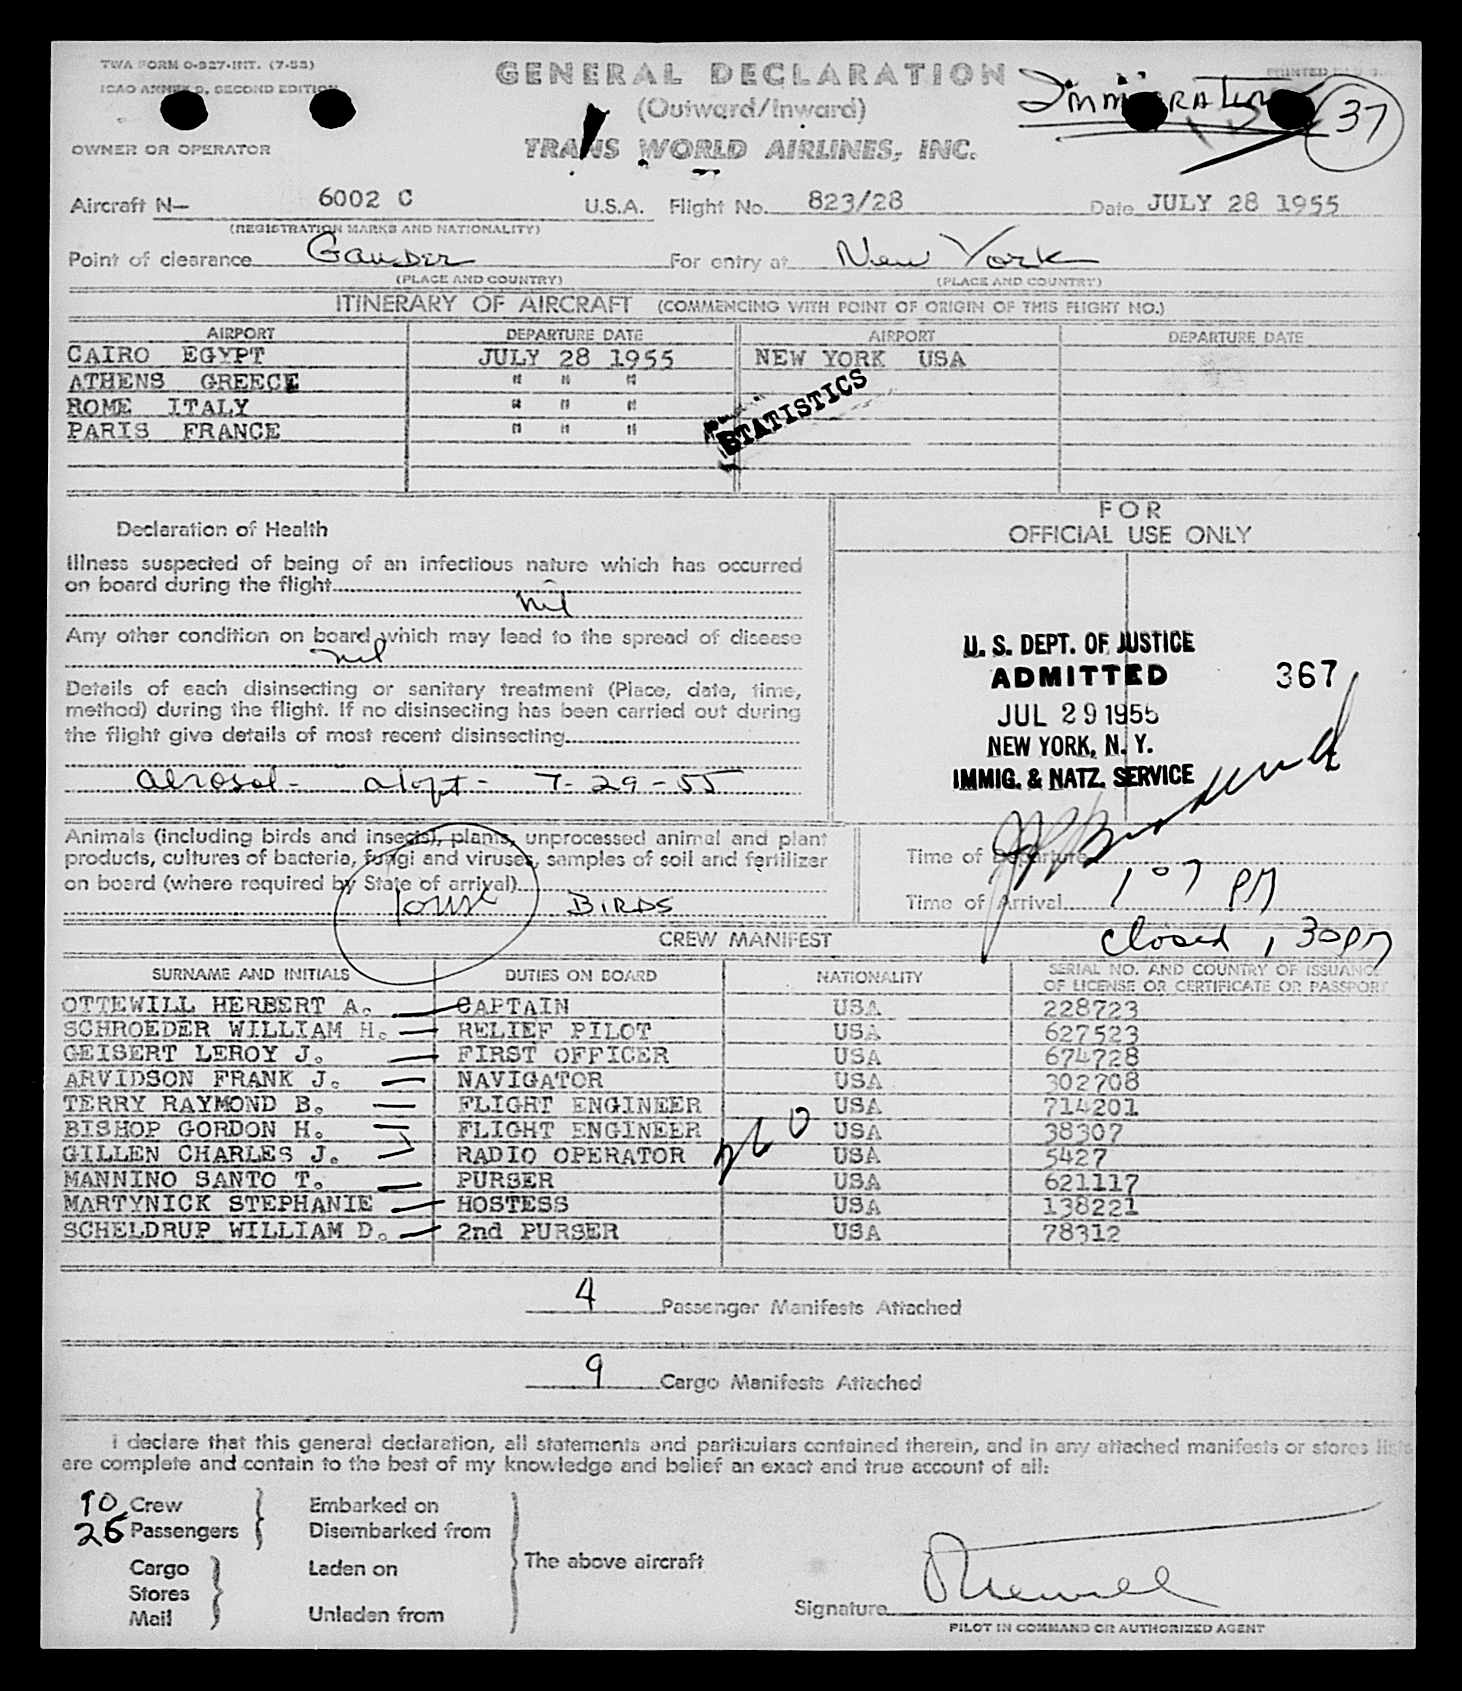 TWA FORM O-927-INT. (7-53)
ICAO ANNEX 9, SECOND EDITION
GENERAL DECLARATION
(Outward/Inward)
TRANS WORLD AIRLINES, INC.
PRINTED IN U.S.A.
IMMIGRATION
37
OWNER OR OPERATOR
Aircraft N— 6002 C U.S.A. Flight No. 823/28 Date JULY 28 1955
(REGISTRATION MARKS AND NATIONALITY)
Point of clearance Gander For entry at New York
(PLACE AND COUNTRY) (PLACE AND COUNTRY)
ITINERARY OF AIRCRAFT (COMMENCING WITH POINT OF ORIGIN OF THIS FLIGHT NO.)
AIRPORT DEPARTURE DATE AIRPORT DEPARTURE DATE
CAIRO EGYPT JULY 28 1955 NEW YORK USA
ATHENS GREECE " " "
ROME ITALY " " "
PARIS FRANCE " " "
STATISTICS
Declaration of Health
Illness suspected of being of an infectious nature which has occurred
on board during the flight
nil
Any other condition on board which may lead to the spread of disease
nil
Details of each disinsecting or sanitary treatment (Place, date, time,
method) during the flight. If no disinsecting has been carried out during
the flight give details of most recent disinsecting
aerosol - 7-29-55
FOR
OFFICIAL USE ONLY
U. S. DEPT. OF JUSTICE
ADMITTED 367
JUL 29 1955
NEW YORK, N. Y.
IMMIG. & NATZ. SERVICE
Animals (including birds and insects), plants, unprocessed animal and plant
products, cultures of bacteria, fungi and viruses, samples of soil and fertilizer
on board (where required by State of arrival)
BIRDS
Time of Departure
Time of Arrival 107 PM
closed 1 30PM
CREW MANIFEST
SURNAME AND INITIALS DUTIES ON BOARD NATIONALITY SERIAL NO. AND COUNTRY OF ISSUANCE
OF LICENSE OR CERTIFICATE OR PASSPORT
OTTEWILL HERBERT A. CAPTAIN USA 228723
SCHROEDER WILLIAM H. RELIEF PILOT USA 627523
GEISERT LEROY J. FIRST OFFICER USA 674728
ARVIDSON FRANK J. NAVIGATOR USA 302708
TERRY RAYMOND B. FLIGHT ENGINEER USA 714201
BISHOP GORDON H. FLIGHT ENGINEER USA 38307
GILLEN CHARLES J. RADIO OPERATOR USA 5427
MANNINO SANTO T. PURSER USA 621117
MARTYNICK STEPHANIE HOSTESS USA 138221
SCHELDRUP WILLIAM D. 2nd PURSER USA 78312
4 Passenger Manifests Attached
9 Cargo Manifests Attached
I declare that this general declaration, all statements and particulars contained therein, and in any attached manifests or stores lists
are complete and contain to the best of my knowledge and belief an exact and true account of all:
10 Crew Embarked on
26 Passengers Disembarked from
The above aircraft
Cargo Laden on
Stores
Mail Unladen from
Signature
PILOT IN COMMAND OR AUTHORIZED AGENT